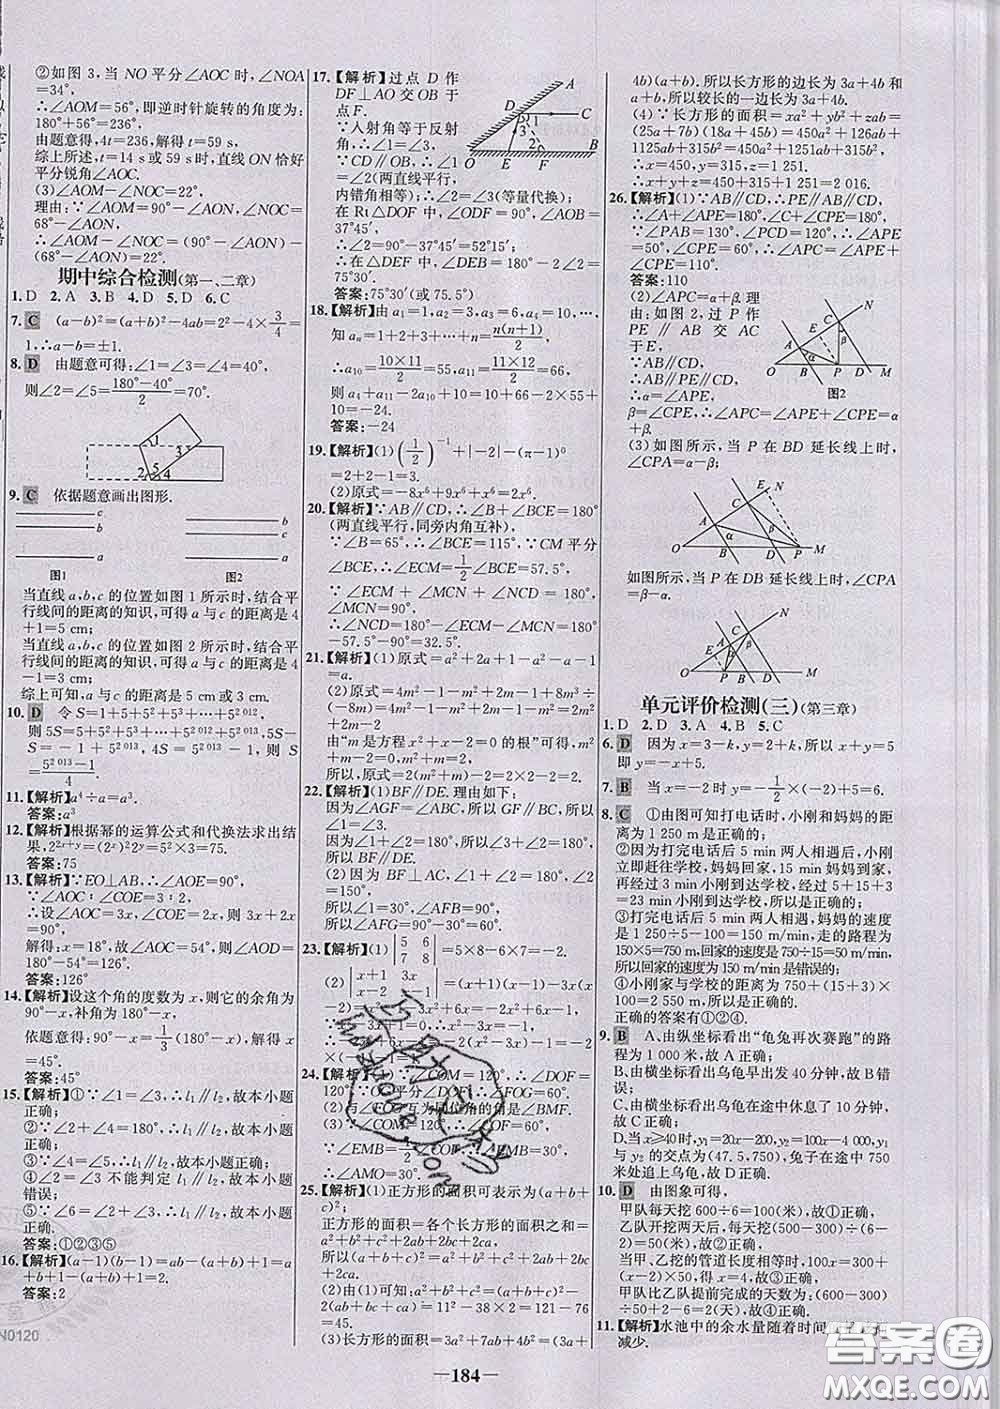 ②如图 3,当 NO 平分∠AOC 时,∠NOA
=34°,
∴∠AOM=56°,即逆时针旋转的角度为:
180°+56°=236°,
由题意得,4t=236,解得 t=59.
综上所述,t=14 s 或 59 s 时,直线 ON 恰好
平分锐角∠AOC.
(3)∠AOM-∠NOC=22°.
理由:∵∠AOM=90°-∠AON,∠NOC=
68°-∠AON,
∴∠AOM-∠NOC=(90°-∠AON)-
(68°-∠AON)=22°.
期中综合检测(第一、二章)
1. D 2. A 3. B 4. D 5. D 6. C
7. C (a-b)²=(a+b)²-4ab=2²-4×3/4=
1,∴a-b=±1.
8. D 由题意可得:∠1=∠3=∠4=40°,
则∠2=∠5=(180°-40°)/2=70°.
1
3
2 5 4
9. C 依据题意画出图形.
c
b
a
图1
b
c
a
图2
当直线 a,b,c 的位置如图 1 所示时,结合平
行线间的距离的知识,可得 a 与 c 的距离是 4
+1=5 cm;
当直线 a,b,c 的位置如图 2 所示时,结合平
行线间的距离的知识,可得 a 与 c 的距离是
4-1=3 cm;
综上可知,a 与 c 的距离是 5 cm 或 3 cm.
10. D 令 S=1+5+5²+5³+…+5²⁰¹²,
则 5S=5+5²+5³+…+5²⁰¹²+5²⁰¹³,5S-
S=-1+5²⁰¹³,4S=5²⁰¹³-1,则 S=
(5²⁰¹³-1)/4.
11.【解析】a⁴÷a=a³.
答案:a³
12.【解析】根据幂的运算公式和代换法求出结
果,2²ˣ⁺ʸ=(2ˣ)²·2ʸ=5²×3=75.
答案:75
13.【解析】∵EO⊥AB,∴∠AOE=90°,
∵∠AOC∶∠COE=3∶2,
∴设∠AOC=3x,∠COE=2x,则 3x+2x
=90°,
解得:x=18°,故∠AOC=54°,则∠AOD=
180°-54°=126°.
答案:126°
14.【解析】设这个角的度数为 x,则它的余角为
90°-x,补角为 180°-x,
依题意得:90°-x=1/3(180°-x),解得 x
=45°.
答案:45°
15.【解析】①∵∠1=∠2,∴l₁∥l₂,故本小题
正确;
②∵∠2+∠4=180°,∴l₁∥l₂,故本小题
正确;
③∵∠4=∠5,∴l₁∥l₂,故本小题正确;
④∠2=∠3 不能判定 l₁∥l₂,故本小题
错误;
⑤∵∠6=∠2+∠3,∴l₁∥l₂,故本小题
正确.
答案:①②③⑤
16.【解析】(a-1)(b-1)=ab-(a+b)+1=a
+b+1-(a+b)+1=2.
答案:2
17.【解析】过点 D 作
DF⊥AO 交 OB 于
点 F.
∵入射角等于反射
角,∴∠1=∠3,
∵CD∥OB,∴∠1
=∠2(两直线平行,
内错角相等);
∴∠2=∠3(等量代换);
在 Rt△DOF 中,∠ODF=90°,∠AOB=
37°45′,
∴∠2=90°-37°45′=52°15′;
∴在△DEF 中,∠DEB=180°-2∠2=
75°30′.
答案:75°30′(或 75.5°)
A
D
C
1
3
2
O
E
F
B
18.【解析】由 a₁=1,a₂=3,a₃=6,a₄=10,…,
知 aₙ=1+2+3+…+n=n(n+1)/2,
∴a₁₀=(10×11)/2=55,a₁₁=(11×12)/2=66,
则 a₄+a₁₁-2a₁₀+10=10+66-2×55+
10=-24.
答案:-24
19.【解析】(1)(1/2)⁻¹+|-2|-(π-1)⁰
=2+2-1=3.
(2)原式=-8x⁶+9x⁶+x⁶=2x⁶.
20.【解析】∵AB∥CD,∴∠B+∠BCE=180°
(两直线平行,同旁内角互补),
∵∠B=65°,∴∠BCE=115°,∵CM 平分
∠BCE,∴∠ECM=1/2∠BCE=57.5°,
∵∠ECM+∠MCN+∠NCD=180°,
∠MCN=90°,
∴∠NCD=180°-∠ECM-∠MCN=180°
-57.5°-90°=32.5°.
21.【解析】(1)原式=a²+2a+1-a²-a-1
=a.
(2)原式=4m²-1-(m²-2m+1)+8m³÷
(-8m)=4m²-1-m²+2m-1-m²=2m²
+2m-2=2(m²+m)-2.
由"m 是方程 x²+x-2=0 的根"可得,m²
+m-2=0,
即 m²+m=2,
所以,原式=2(m²+m)-2=2×2-2=2.
22.【解析】(1)BF∥DE.理由如下:
因为∠AGF=∠ABC,所以 GF∥BC,所以
∠1=∠3,
因为∠1+∠2=180°,所以∠3+∠2=180°,
所以 BF∥DE.
(2)因为 BF∥DE,BF⊥AC,所以 DE⊥
AC,因为∠1+∠2=180°,∠2=150°,
所以∠1=30°,∠AFB=90°,
所以∠AFG=90°-30°=60°.
23.【解析】(1)|5 6; 7 8|=5×8-6×7=-2.
(2)|x+1 3x; x-2 x-1|=(x+1)(x-1)-3x(x
-2)
24.
=120°,∴OG 平分∠DOF,∴∠FOG=60°.
25.【解析】(1)正方形的面积可表示为(a+b+
c)²;
正方形的面积=各个矩形的面积之和=
a²+b²+c²+2ab+2bc+2ca,
所以(a+b+c)²=a²+b²+c²+2ab+2bc+
2ca.
(2)由(1)可知:a²+b²+c²=(a+b+c)²-
2(ab+bc+ca)=11²-2×38=121-76=
45.
(3)长方形的面积=3a²+7ab+4b²=(3a+
4b)(a+b).所以长方形的边长为 3a+4b 和
a+b,所以较长的一边长为 3a+4b.
(4)∵长方形的面积=xa²+yb²+zab=
(25a+7b)(18a+45b)=450a²+126ab+
1125ab+315b²=450a²+1251ab+315b²,
∴x=450,y=315,z=1 251.
∴x+y+z=450+315+1 251=2 016.
26.【解析】(1)∵AB∥CD,∴PE∥AB∥CD,
∴∠A+∠APE=180°,∠C+∠CPE=180°,
∵∠PAB=130°,∠PCD=120°,∴∠APE
=50°,∠CPE=60°,∴∠APC=∠APE+
∠CPE=110°.
答案:110
(2)∠APC=α+β.理
由:如图 2,过 P 作
PE∥AB 交 AC
于 E,
∵AB∥CD,
∴AB∥PE∥CD,
∴∠α=∠APE,∠β=
∠CPE,∴∠APC=∠APE+∠CPE=α+
β.
N
C
E
A
β
α
O
B
P
D
M
图2
(3)如图所示,当 P 在 BD 延长线上时,
∠CPA=α-β;
E N
C
A
β
α
O
B
D
P
M
如图所示,当 P 在 DB 延长线上时,∠CPA
=β-α.
N
C
A
E
O
P
B
D
M
单元评价检测(三)(第三章)
1. D 2. D 3. A 4. B 5. C
6. D 因为 x=3-k,y=2+k,所以 x+y=5
即 y=-x+5.
7. B 当 x=-2 时 y=-1/2×(-2)+5=6.
8. C ①由图可知打电话时,小刚和妈妈的距
离为 1 250 m 是正确的;
②因为打完电话后 5 min 两人相遇后,小刚
立即赶往学校,妈妈回家,妈妈到家后,再
过 3 min 小刚到达学校,经过了 5+15+3
=23 min 小刚到达学校,所以是正确的;
③打完电话后 5 min 两人相遇,妈妈的速度
是 1 250÷5-100=150 m/min,走的路程为
150×5=750 m,回家的速度是 750÷15=50 m/min,
所以回家的速度为 150 m/min 是错误的;
④小刚家与学校的距离为 750+(15+3)×
100=2 550 m,所以是正确的.
正确的答案有①②④.
9. B A.由纵坐标看出"龟兔再次赛跑"的路
程为 1 000 m,故 A 正确;
B.由横坐标看出乌龟早出发 40 分钟,故 B
错误;
C.由横坐标看出乌龟在途中休息了 10 分钟,
故 C 正确;
D.当 x≥40 时,y₁=20x-200,y₂=100x-4 000,y₁
与 y₂ 的交点为(47.5,750),兔子在途中 750
米处追上乌龟,故 D 正确.
10. D 由图象可得,
甲队每天挖 600÷6=100(米),故①正确;
乙队开挖两天后,每天挖(500-300)÷(6-
2)=50(米),故②正确;
当甲、乙挖的管道长度相等时,100x=300+
(x-2)×50,得 x=4,故③正确;
甲队比乙队提前完成的天数为(600-300)
÷50+2-600÷100=2(天),故④正确.
11.【解析】水池中的余水量随着时间
减少.
—184—
N0120
答案圈
MXQE.COM